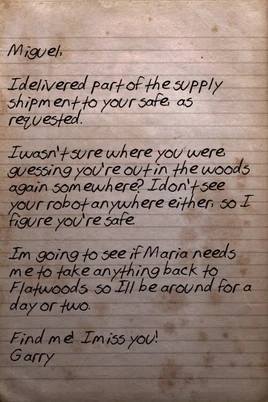 Miguel,
I delivered part of the supply
shipment to your safe, as
requested.
I wasn't sure where you were,
guessing you're out in the woods
again somewhere? I don't see
your robot anywhere either, so I
figure you're safe.
Im going to see if Maria needs
me to take anything back to
Flatwoods, so I'll be around for a
day or two.
Find me! I miss you!
Garry